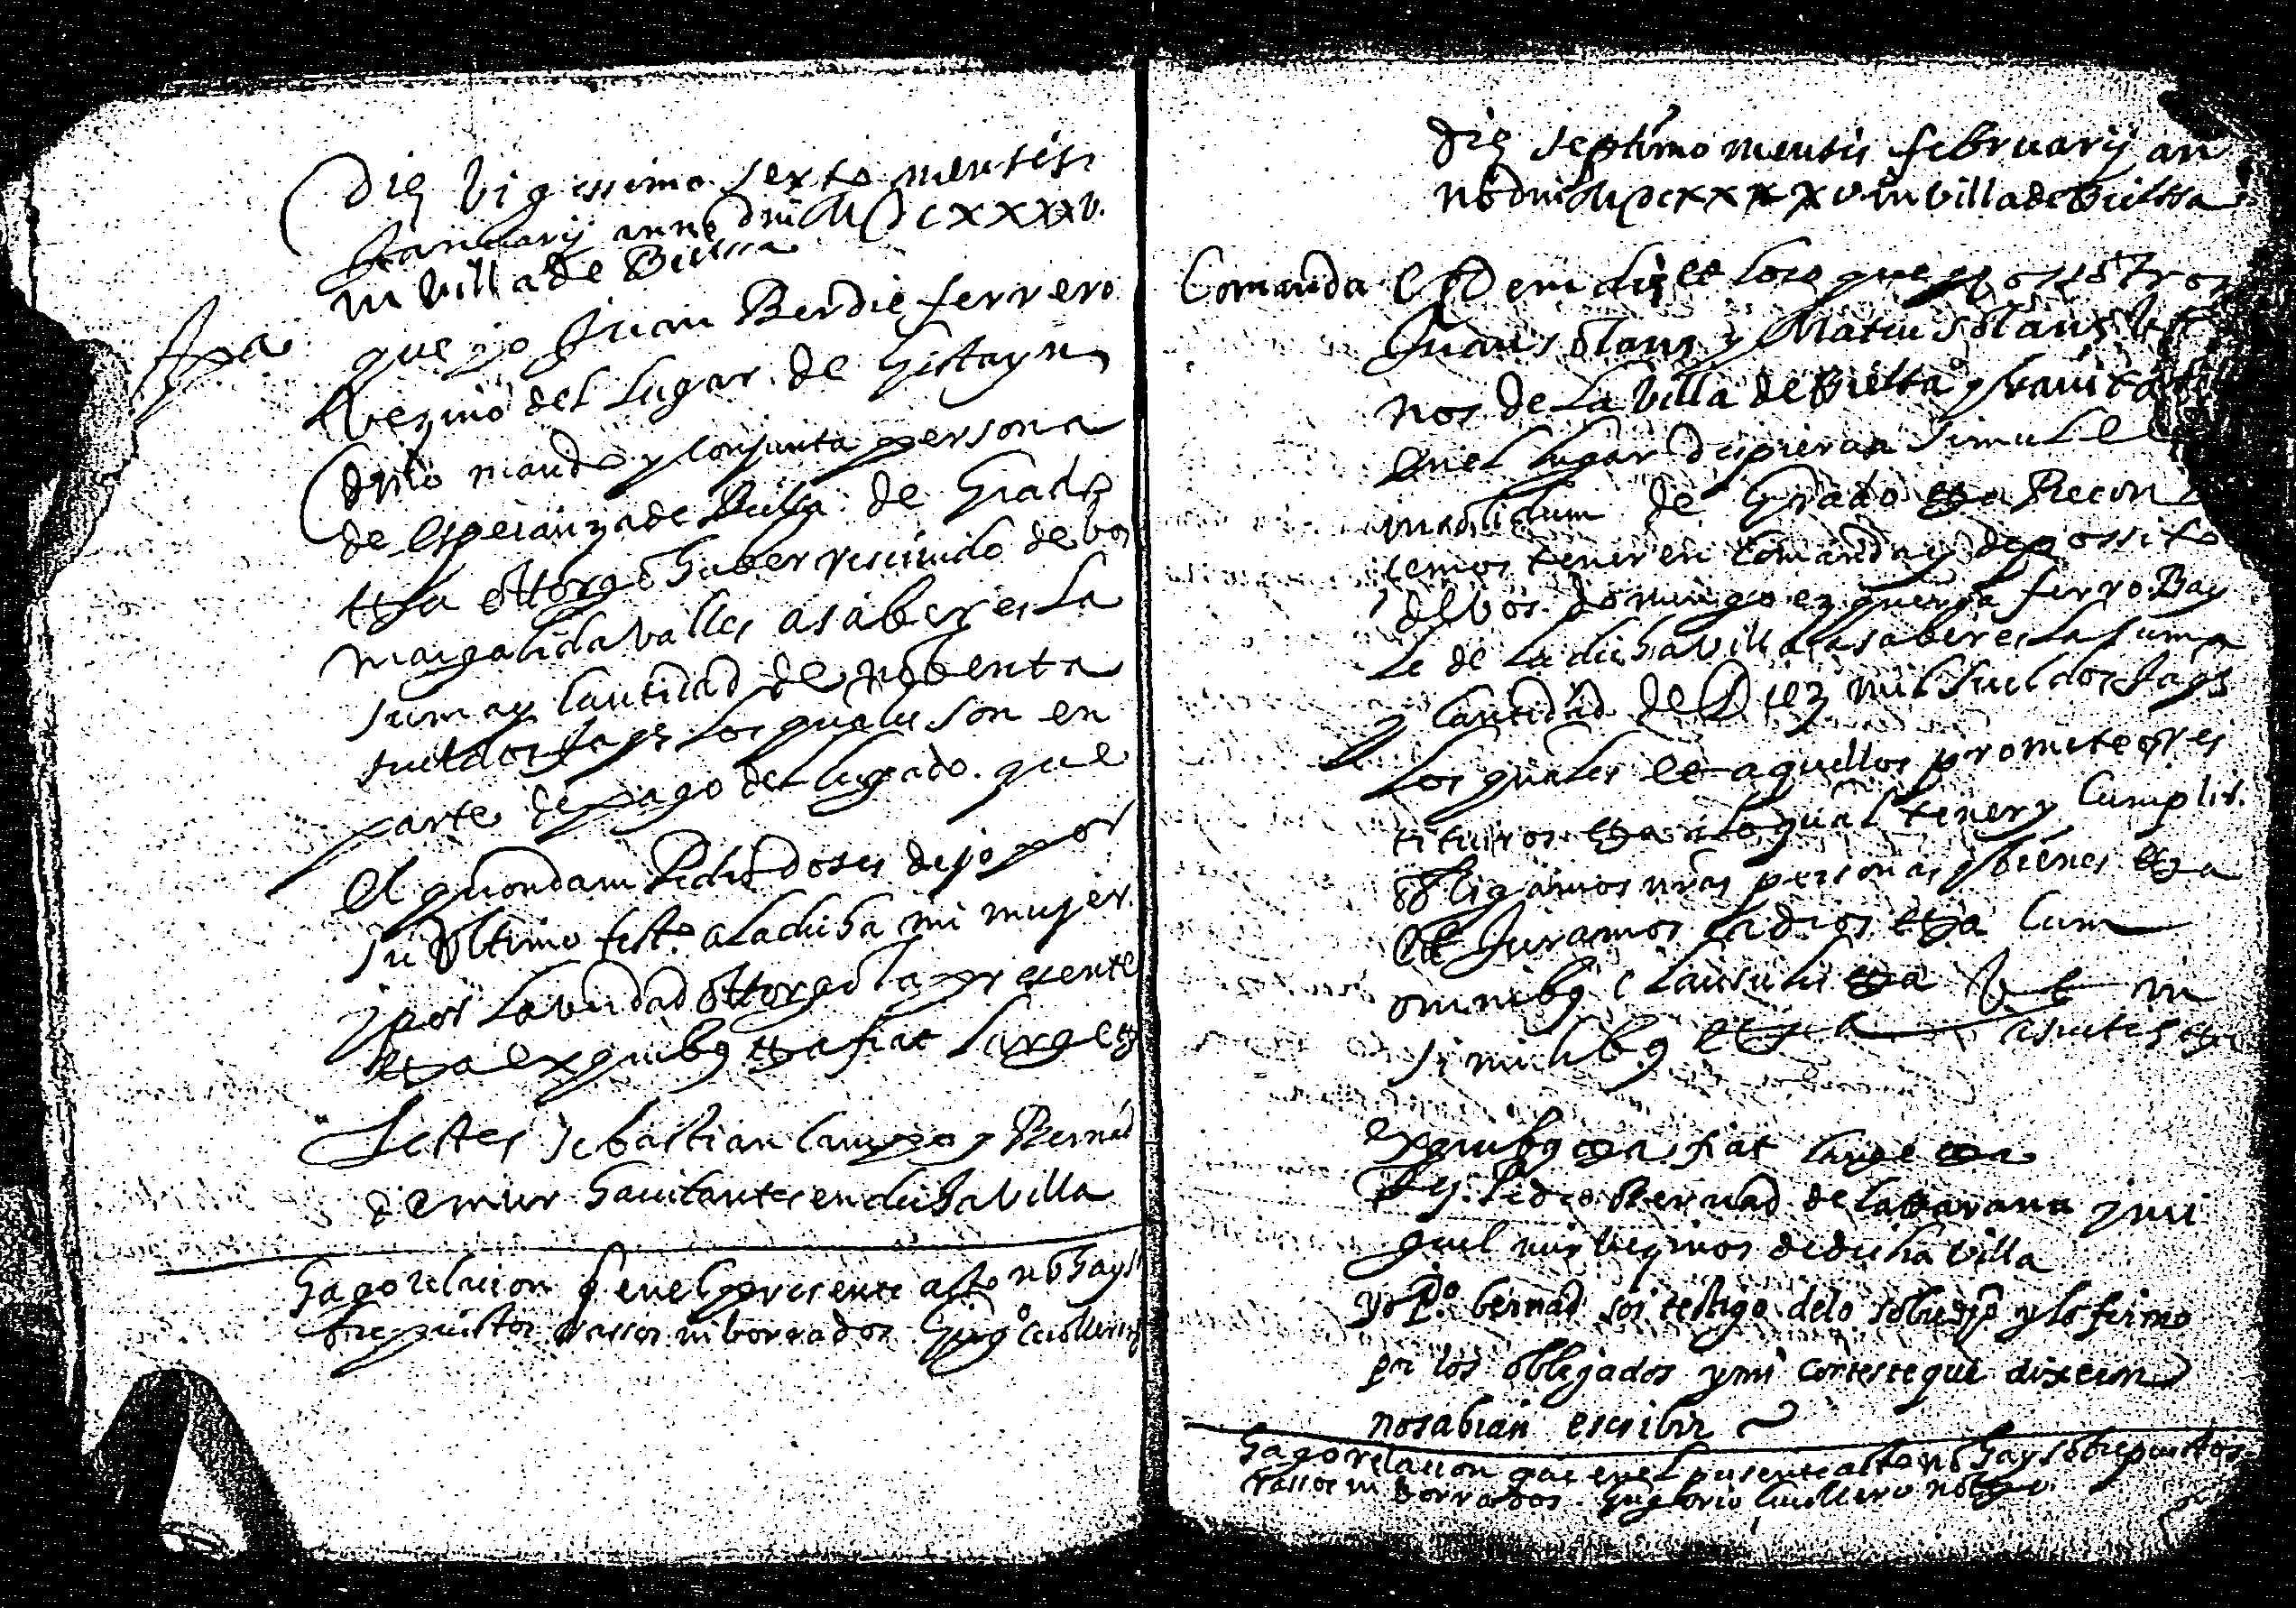 Die vigessimo sexto mensis
Januarij anno dni MDCXXXXV.
in villa de Bielssa
Apca
que yo Juan Berdie ferrero
vezino del lugar de Gistayn
como marido y conjunta persona
de Esperanza de de Grado
etta ottorgo haber rescivido de vos
Margalida Valles a saber es la
suma y cantidad de nobenta
sueldos Jaqs los quales son en
parte de pago del legado que
el quondam dejo por
su ultimo testo a la dicha mi mujer
y por la verdad ottorgo la presente
etta ex quibq etta fiat large etta
Testes Sebastian Campo y Bernad
de mur havitantes en dicha villa
Hago relacion q en el presente acto no hay
sobrepuestos rassos ni borrados Grego
Die septimo mensis februarij an
no dni MDCXXXXV in villa de Bielssa
Comanda Eisdem die et loco que nossotros
Juan Solans y Mateu Solans vezi
nos de la villa de Bielssa y havitantes
en el lugar de simul et
insolidum de Grado etta Recon
cemos tener en comanda y depossito
de vos Domingo ezquerra ferro Bay
le de la dicha villa a saber es la suma
y cantidad de Diez mil sueldos Jaqs
los quales et aquellos prometemos res
tituiros etta a lo qual tener y cumplir
obligamos nras personas y bienes etta
et Juramos a dios etta cum
omnibq clausulis etta
similibq etta
ex quibq etta fiat large etta
Ts. Pedro Bernad de y mi
guel mur vezinos de dicha villa
yo Po. bernad soi testigo de lo sobredho y lo firmo
por los obligados y mi conteste que dixeron
no sabian escribir
Hago relacion que en el presente acto no hay sobrepuestos
rassos ni borrados. Gregorio noto